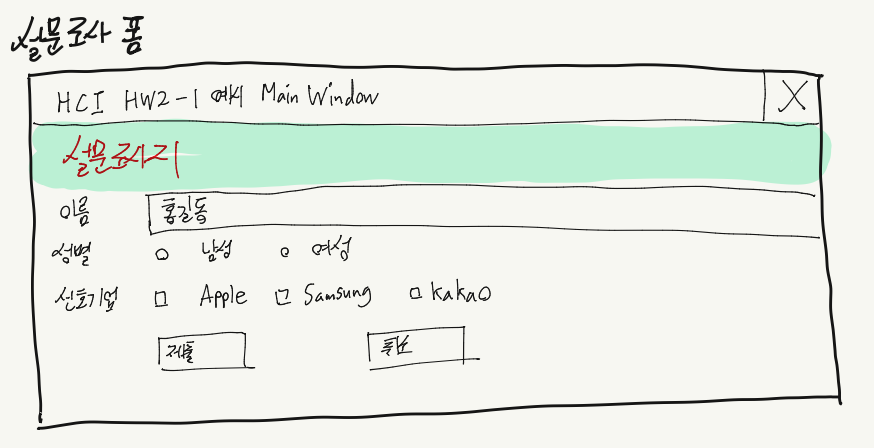 설문조사 폼
HCI HW2-1 예시 Main Window X
설문조사지
이름 홍길동
성별 남성 여성
선호기업 Apple Samsung kakao
제출 취소